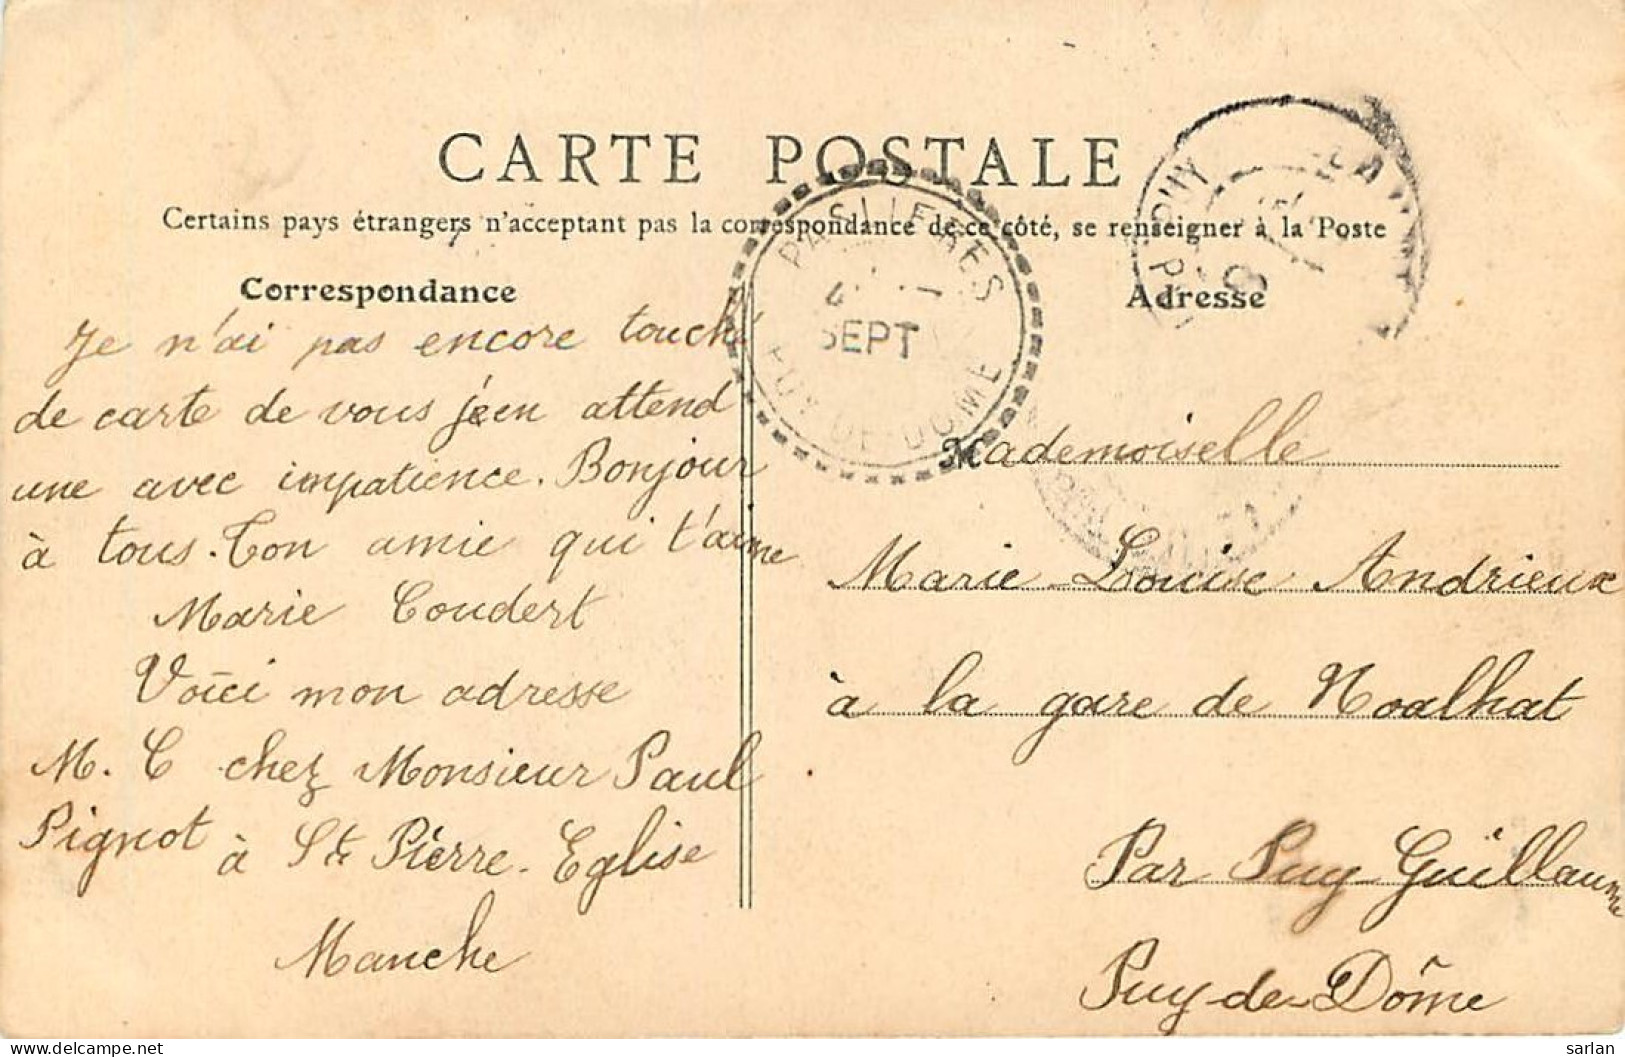 CARTE POSTALE
Certains pays étrangers n'acceptant pas la correspondance de ce côté, se renseigner à la Poste
Correspondance
Je n'ai pas encore touché
de carte de vous j'en attend
une avec impatience. Bonjour
à tous. Ton amie qui t'aime
Marie Coudert
Voici mon adresse
M. C chez Monsieur Paul
Pignot à St Pierre-Eglise
Manche
Adresse
Mademoiselle
Marie-Louise Andrieux
à la gare de Noalhat
Par Puy-Guillaume
Puy-de-Dôme
PASLIERES
SEPT
PUY-DE-DOME
sarlan